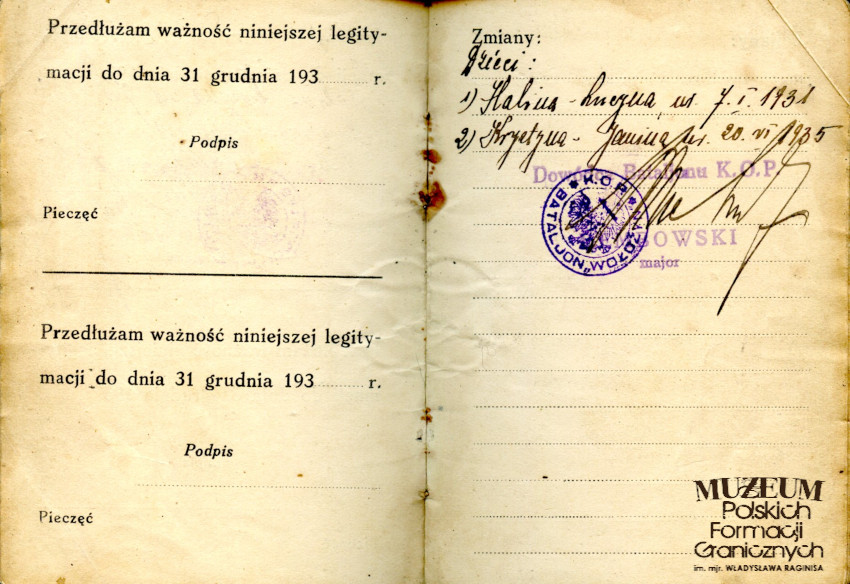 Przedłużam ważność niniejszej legity-
macji do dnia 31 grudnia 193 r.
Podpis
Pieczęć
Przedłużam ważność niniejszej legity-
macji do dnia 31 grudnia 193 r.
Podpis
Pieczęć
Zmiany:
Dzieci:
1) Halina - ur. 7. I. 1931
2) Krystyna - Janina ur. 20. VI 1935
Dowódca Bataljonu K.O.P.
K.O.P.
BATALJON „WOŁOŻYN"
major
MUZEUM
Polskich
Formacji
Granicznych
im. mjr. WŁADYSŁAWA RAGINISA